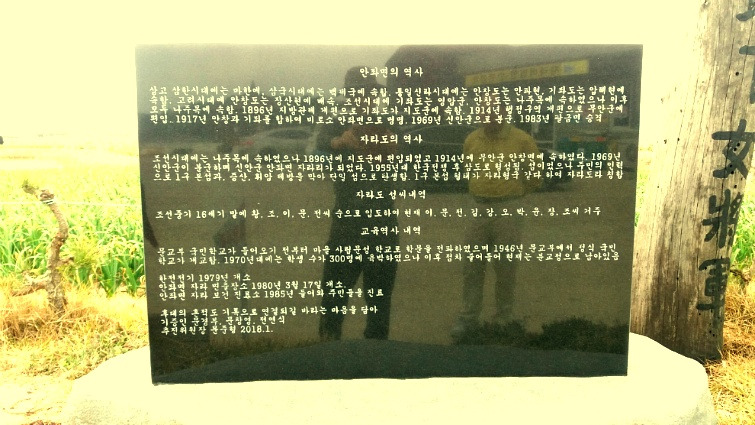 안좌면의 역사
상고 삼한시대에는 마한에, 삼국시대에는 백제국에 속함, 통일신라시대에는 안창도는 안파현, 기좌도는 압해현에
속함, 고려시대에 안창도는 장산현에 예속, 조선시대에 기좌도는 영암군, 안창도는 나주목에 속하였으나 이후
모두 나주목에 속함, 1896년 지방관제 개편으로 기좌도가 지도군에 속함, 1914년 행정구역 개편으로 무안군에
편입, 1917년 안창과 기좌를 합하여 비로소 안좌면으로 명명, 1969년 신안군으로 분군, 1983년 승격
자라도의 역사
조선시대에는 나주목에 속하였으나 1896년에 지도군에 편입되었고 1914년에 무안군 안창면에 속하였다. 1969년
신안군이 분군하며 신안군 안좌면 자라리가 되었다. 1955년대 한국전쟁 후 삼도로 형성된 섬이었으나 주민의 인력
으로 1구 본섬과, 증산, 휘암 제방을 막아 단일 섬으로 탄생함. 1구 본섬 월파가 자라형국 같다 하여 자라도라 칭함
자라도 성씨내역
조선중기 16세기 말에 황, 조, 이, 문, 전씨 순으로 입도하여 현재 이, 문, 선, 김, 강, 오, 박, 윤, 장, 조씨 거주
교육역사 내역
문교부 국민학교가 들어오기 전부터 마을 사립문성 학교로 학문을 전파하였으며 1946년 문교부에서 정식 국민
학교가 개교함, 1970년대에는 학생 수가 300명에 육박하였으나 이후 점차 줄어들어 현재는 분교성으로 남아있음
한전전기 1979년 개소
안좌면 자라 면출장소 1980년 3월 17일 개소,
안좌면 자라 보건 진료소 1985년 들어와 주민들을 진료
후대의 흔적도 기록으로 연결되길 바라는 마음을 담아
기증인 문경부, 문창영, 전연식
추진위원장 문주형 2018.1.